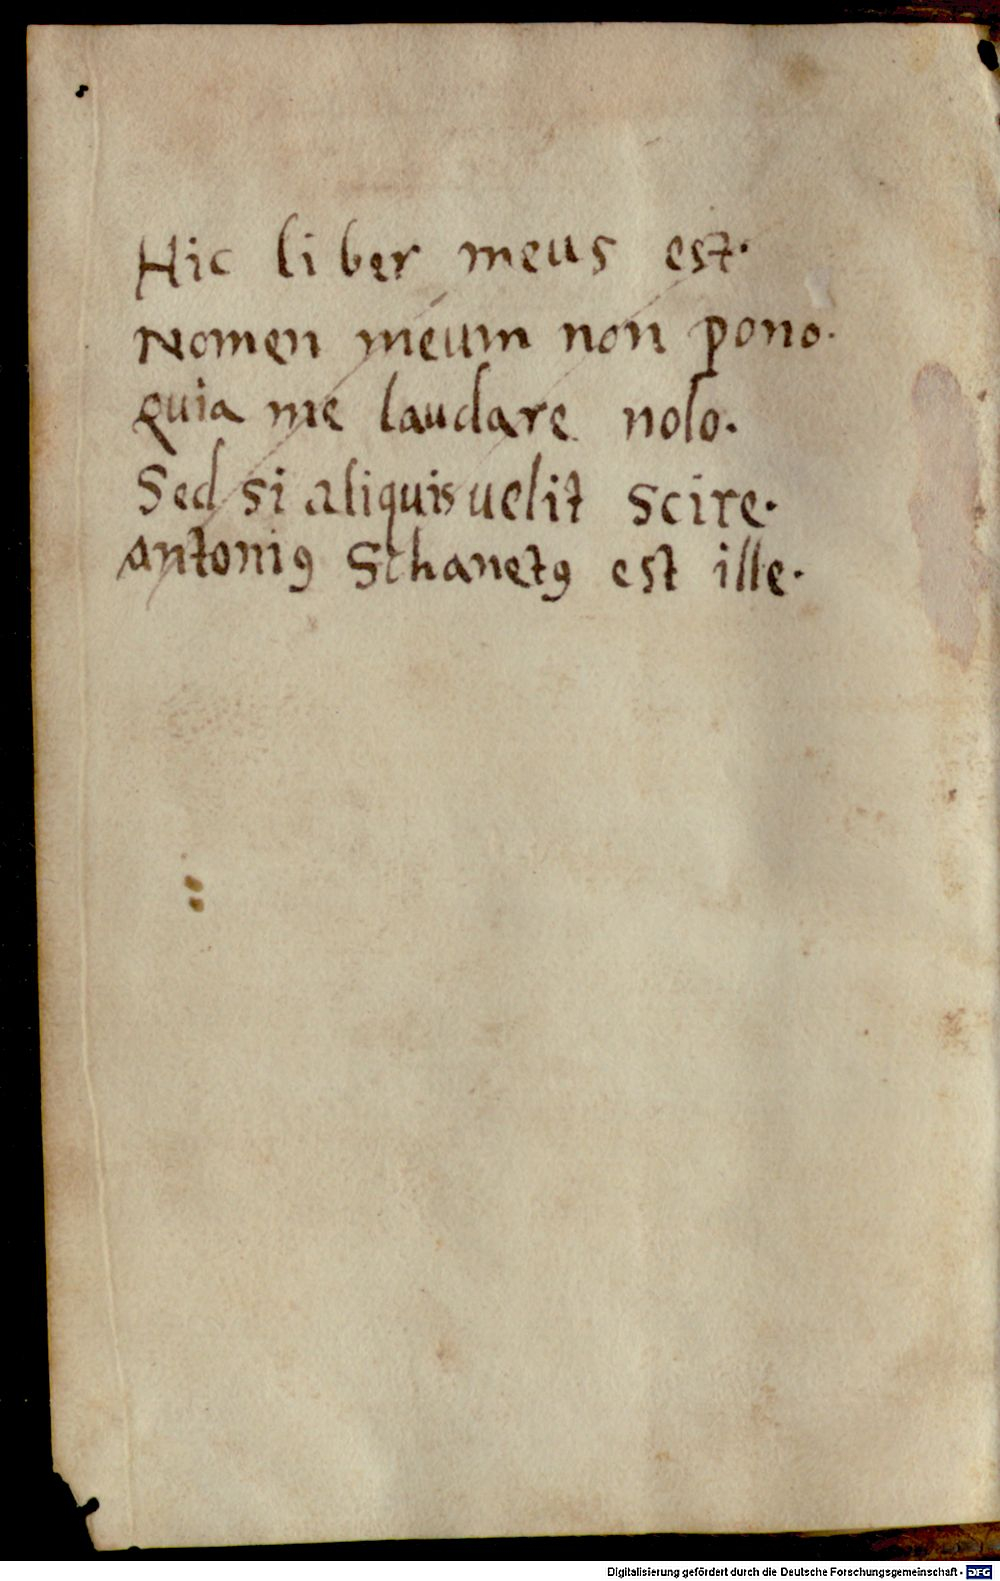 Hic liber meus est·
Nomen meum non pono·
quia me laudare nolo·
Sed si aliquis uelit scire·
antoniꝰ Schanetꝰ est ille·
Digitalisierung gefördert durch die Deutsche Forschungsgemeinschaft - DFG